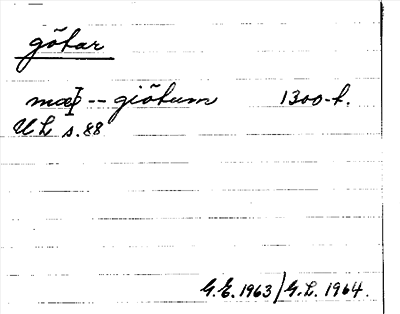 götar
mæþ -- giötum 1300-t.
UL s. 88
G.E. 1963/G.L. 1964.